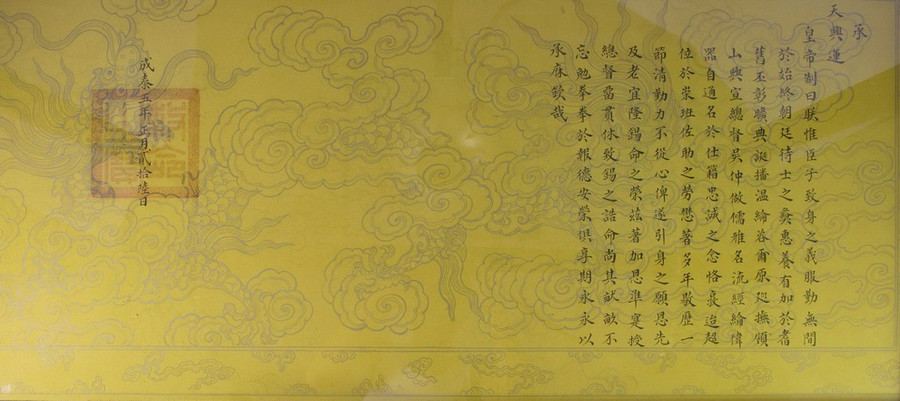 承
天興運
皇帝制曰朕惟臣子致身之義服勤無間
於始終朝廷待士之彝惠養有加於耆
舊丕彰曠典誕播溫綸咨爾原巡撫領
山興宣總督吳仲倣儒雅名流經綸偉
器自通名於仕籍忠誠之念恪襄迨超
位於崇班佐助之勞懋著多年敭歷一
節清勤力不從心俾遂引身之願恩先
及老宜隆錫命之榮茲著加恩準寔授
總督當貫休致錫之誥命尚其猷畝不
忘勉拳拳於報德安榮俱享期永永以
承庥欽哉
成泰五年正月貳拾陸日